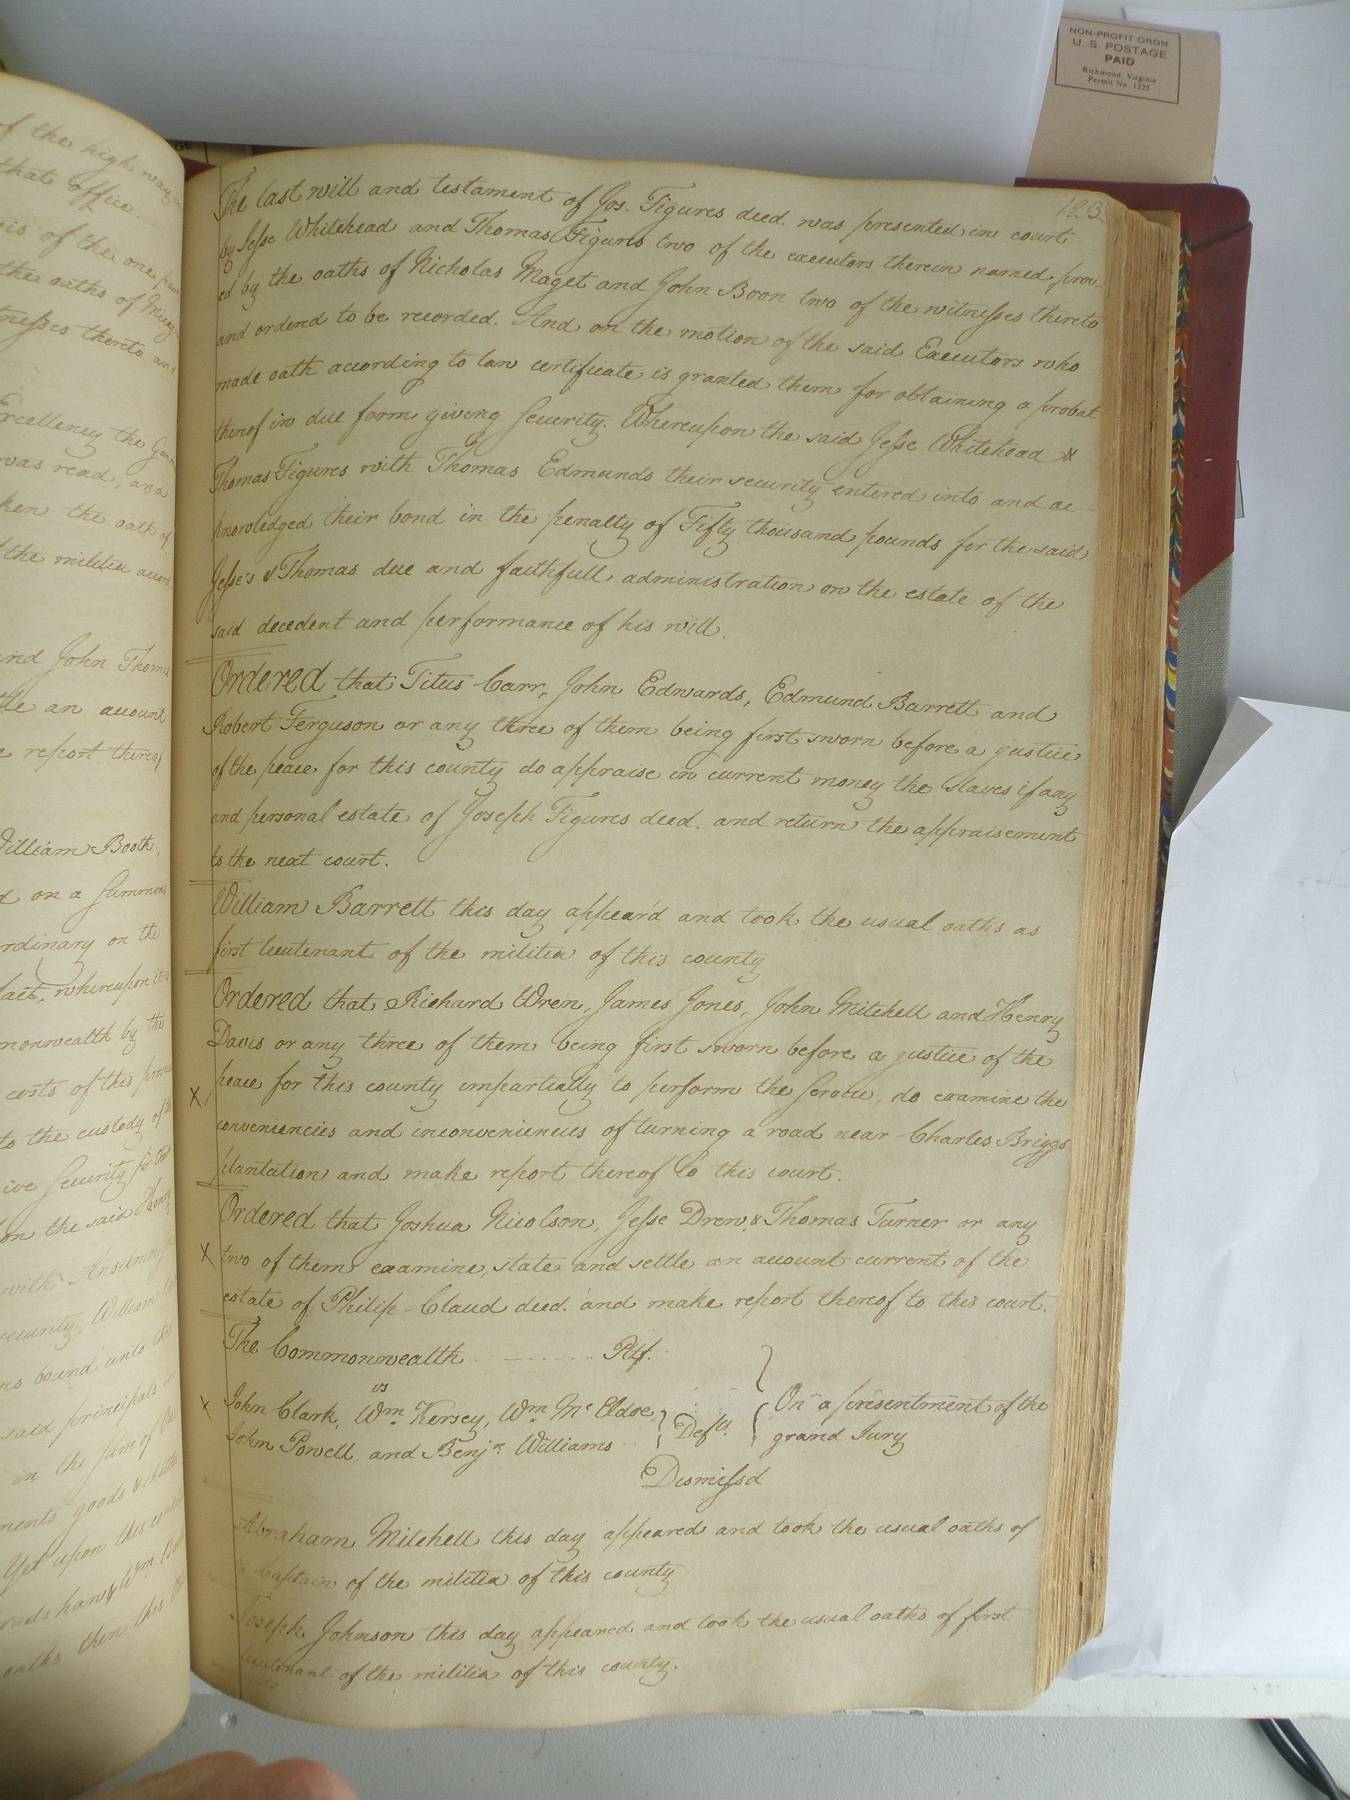 NON-PROFIT ORGN
U. S. POSTAGE
PAID
Richmond, Virginia
Permit No. 1225
of the high way
that office
is of the one
the oaths of
tnesses thereto and
Excellency the Gov
was read, and
ken the oath of
the militia
and John Thomas
tle an account
report thereof
William Booth,
d on a Summons
rdinary on the
fact, whereupon it is
monwealth by the
costs of this
to the custody of
ive Security for
on the said Henry
with
security, William
bound unto
said principals
in the sum of
ments goods & chattles
Yet upon this
Wm
months then this
123
The last will and testament of Jos. Figures decd. was presented in court
by Jesse Whitehead and Thomas Figures two of the executors therein named, prov-
ed by the oaths of Nicholas Maget and John Boon two of the witnesses thereto
and ordered to be recorded. And on the motion of the said Executors who
made oath according to law certificate is granted them for obtaining a probat
thereof in due form giving Security. Whereupon the said Jesse Whitehead &
Thomas Figures with Thomas Edmunds their security entered into and ac-
knowledged their bond in the penalty of Fifty thousand pounds for the said
Jesse's & Thomas due and faithfull administration on the estate of the
said decedent and performance of his will.
Ordered that Titus Carr, John Edwards, Edmund Barrett and
Robert Ferguson or any three of them being first sworn before a justice
of the peace for this county do appraise in current money the slaves if any
and personal estate of Joseph Figures decd. and return the appraisement
to the next court.
William Barrett this day appear'd and took the usual oaths as
first lieutenant of the militia of this county
Ordered that Richard Wren, James Jones, John Mitchell and Henry
Davis or any three of them being first sworn before a justice of the
X peace for this county impartially to perform the Service, do examine the
conveniencies and inconveniencies of turning a road near Charles Briggs
plantation and make report thereof to this court.
Ordered that Joshua Nicolson, Jesse Drew, & Thomas Turner or any
X two of them examine, state and settle an account current of the
estate of Philip Claud decd. and make report thereof to this court.
The Commonwealth Plf.
vs
X John Clark, Wm. Kersey, Wm. Defts. On a presentment of the
John Powell and Benjn. Williams grand Jury
Dismissd
Abraham Mitchell this day appeared and took the usual oaths of
a Captain of the militia of this county
Joseph Johnson this day appeared and took the usual oaths of first
lieutenant of the militia of this county.